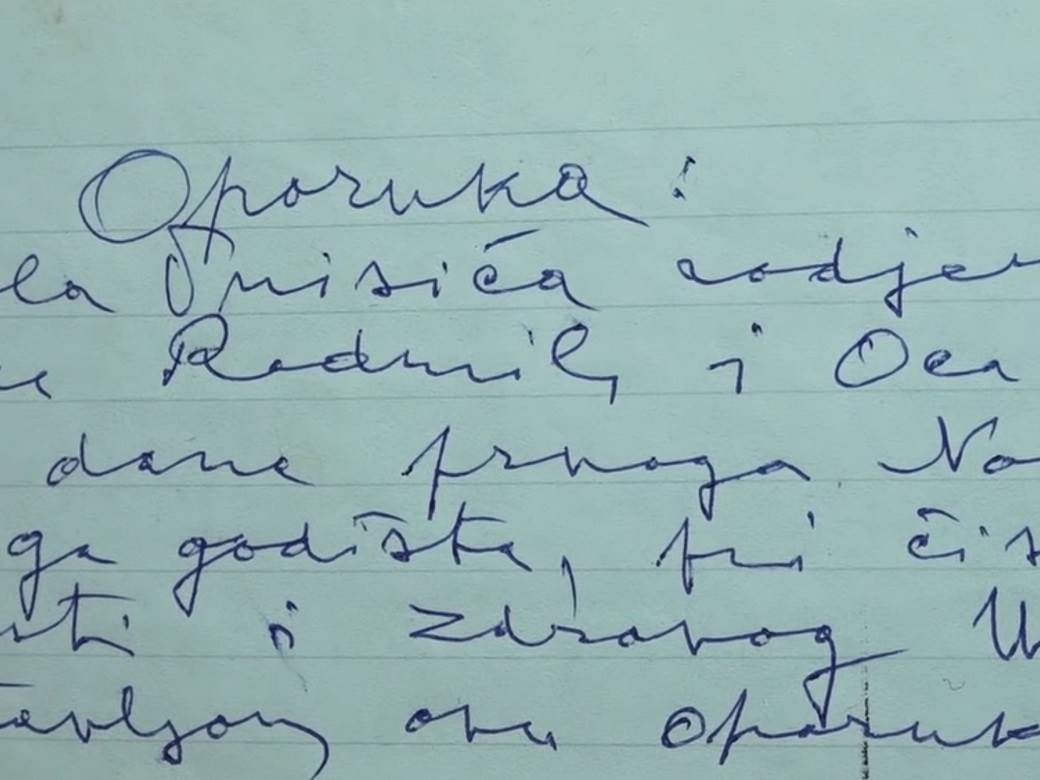 Oporuka :
la Prisića rodjen
Radmila i Oca
dane prvoga No
ga godišta, pri čis
sti i zdravog U
tavljam ovu oporuk